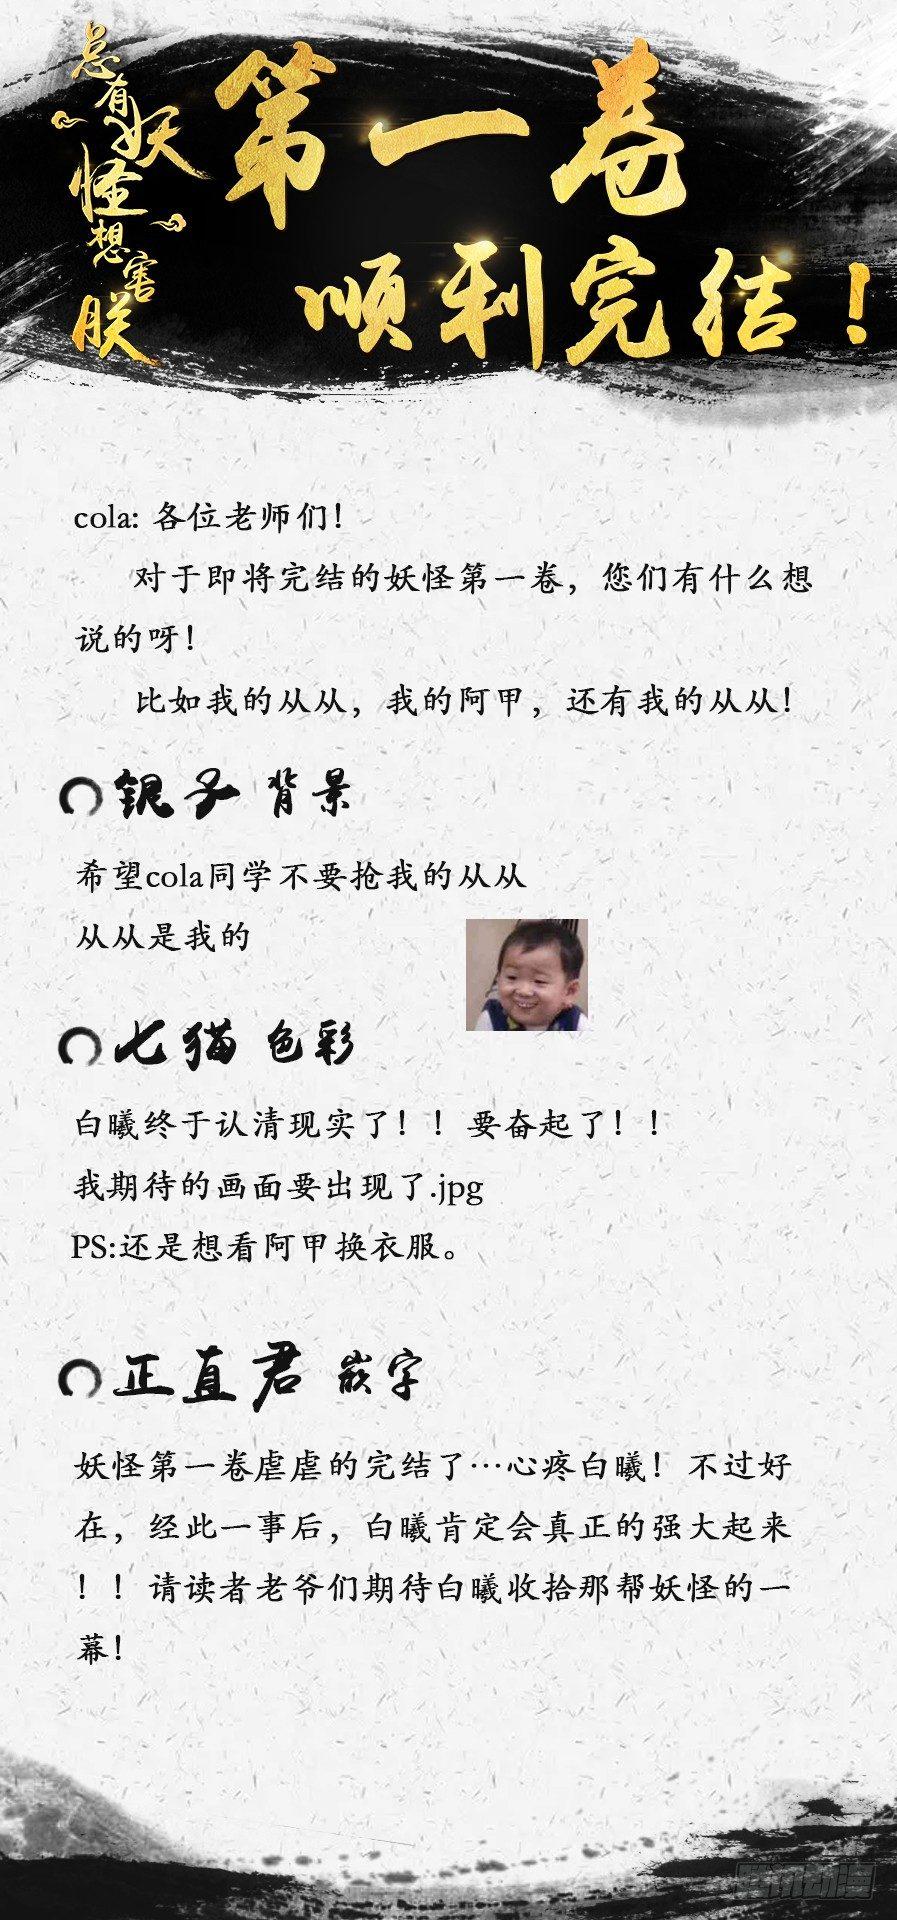 总有妖怪想害朕
第一卷
顺利完结！
cola: 各位老师们！
对于即将完结的妖怪第一卷，您们有什么想
说的呀！
比如我的从从，我的阿甲，还有我的从从！
银子 背景
希望cola同学不要抢我的从从
从从是我的
七猫 色彩
白曦终于认清现实了！！要奋起了！！
我期待的画面要出现了.jpg
PS:还是想看阿甲换衣服。
正直君 嵌字
妖怪第一卷虐虐的完结了…心疼白曦！不过好
在，经此一事后，白曦肯定会真正的强大起来
！！请读者老爷们期待白曦收拾那帮妖怪的一
幕！
腾讯动漫